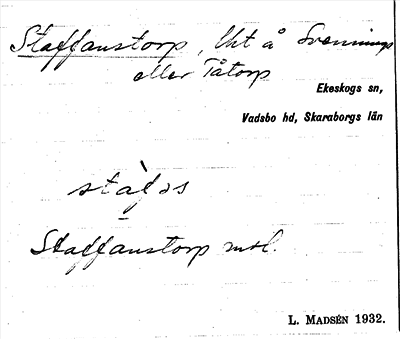 Staffanstorp, lht å Svennings
eller Tåtorp
Ekeskogs sn,
Vadsbo hd, Skaraborgs län
stàfəs
Staffanstorp mtl.
L. MADSÉN 1932.